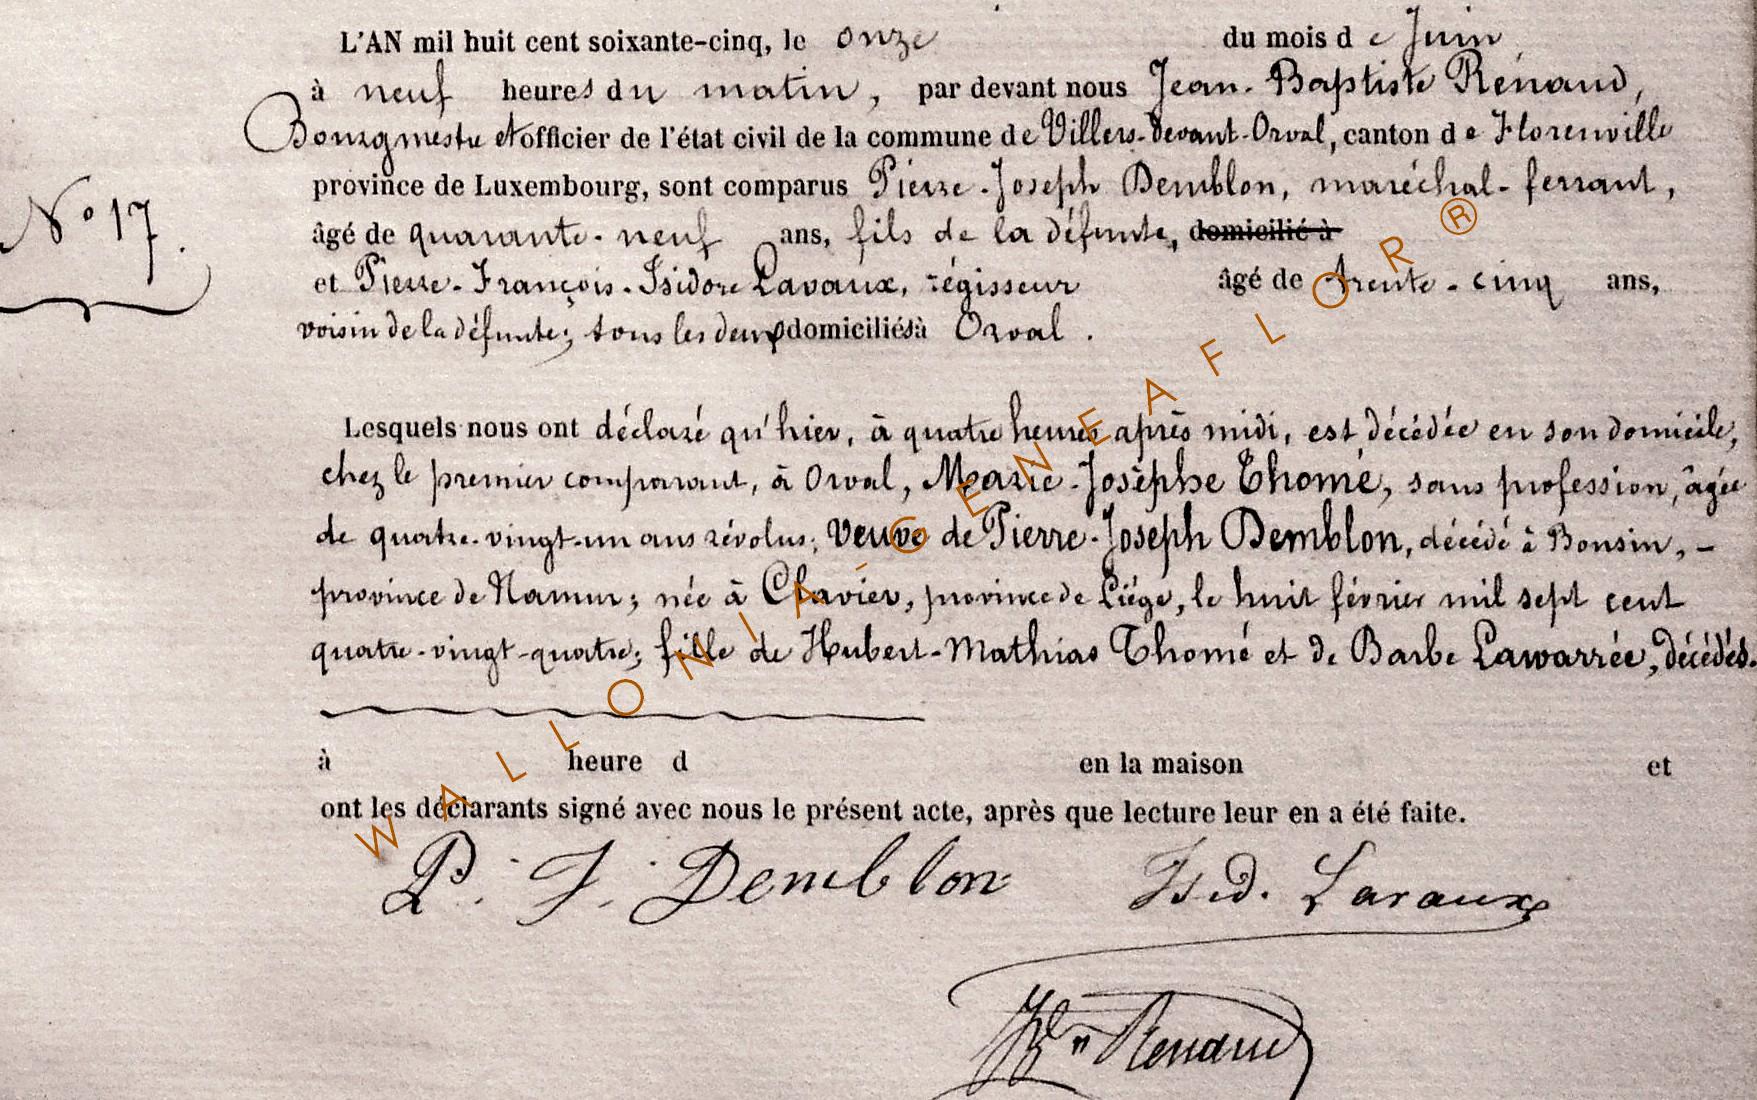 L'AN mil huit cent soixante-cinq, le onze du mois de Juin,
à neuf heures du matin, par devant nous Jean-Baptiste Renaud,
Bourgmestre et officier de l'état civil de la commune de Villers-devant-Orval, canton de Florenville
province de Luxembourg, sont comparus Pierre-Joseph Demblon, maréchal-ferrant,
N° 17.
âgé de quarante-neuf ans, fils de la défunte, domicilié à
et Pierre-François-Isidore Lavaux, régisseur âgé de trente-cinq ans,
voisin de la défunte; tous les deux domiciliés à Orval.
Lesquels nous ont déclaré qu'hier, à quatre heures après midi, est décédée en son domicile,
chez le premier comparant, à Orval, Marie-Josèphe Thomé, sans profession, âgée
de quatre-vingt-un ans révolus; veuve de Pierre-Joseph Demblon, décédé à Bonsin, -
province de Namur; née à Clavier, province de Liége, le huit février mil sept cent
quatre-vingt-quatre; fille de Hubert-Mathias Thomé et de Barbe Lawarrée, décédés.
à heure d en la maison et
ont les déclarants signé avec nous le présent acte, après que lecture leur en a été faite.
P. J. Demblon Isid. Lavaux
JBte Renaud
WALLONIA-GENEAFLOR®